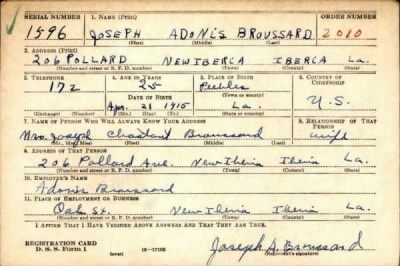 SERIAL NUMBER 1. NAME (Print) ORDER NUMBER
1596 JOSEPH ADONIS BROUSSARD 2010
(First) (Middle) (Last)
2. ADDRESS (Print)
206 POLLARD NEW IBERIA IBERIA La.
(Number and street or R. F. D. number) (Town) (County) (State)
3. TELEPHONE 4. AGE IN YEARS 5. PLACE OF BIRTH 6. COUNTRY OF CITIZENSHIP
172 25 Peebles
DATE OF BIRTH (Town or county)
Apr. 21 1915 La. U.S.
(Exchange) (Number) (Mo.) (Day) (Yr.) (State or country)
7. NAME OF PERSON WHO WILL ALWAYS KNOW YOUR ADDRESS 8. RELATIONSHIP OF THAT PERSON
Mrs. Joseph Chastant Broussard wife
(Mr., Mrs., Miss) (First) (Middle) (Last)
9. ADDRESS OF THAT PERSON
206 Pollard Ave. New Iberia Iberia La.
(Number and street or R. F. D. number) (Town) (County) (State)
10. EMPLOYER'S NAME
Adonis Broussard
11. PLACE OF EMPLOYMENT OR BUSINESS
Oak St. New Iberia Iberia La.
(Number and street or R. F. D. number) (Town) (County) (State)
I AFFIRM THAT I HAVE VERIFIED ABOVE ANSWERS AND THAT THEY ARE TRUE.
REGISTRATION CARD
D. S. S. Form 1 (over) 16—17105 Joseph A. Broussard
(Registrant's signature)